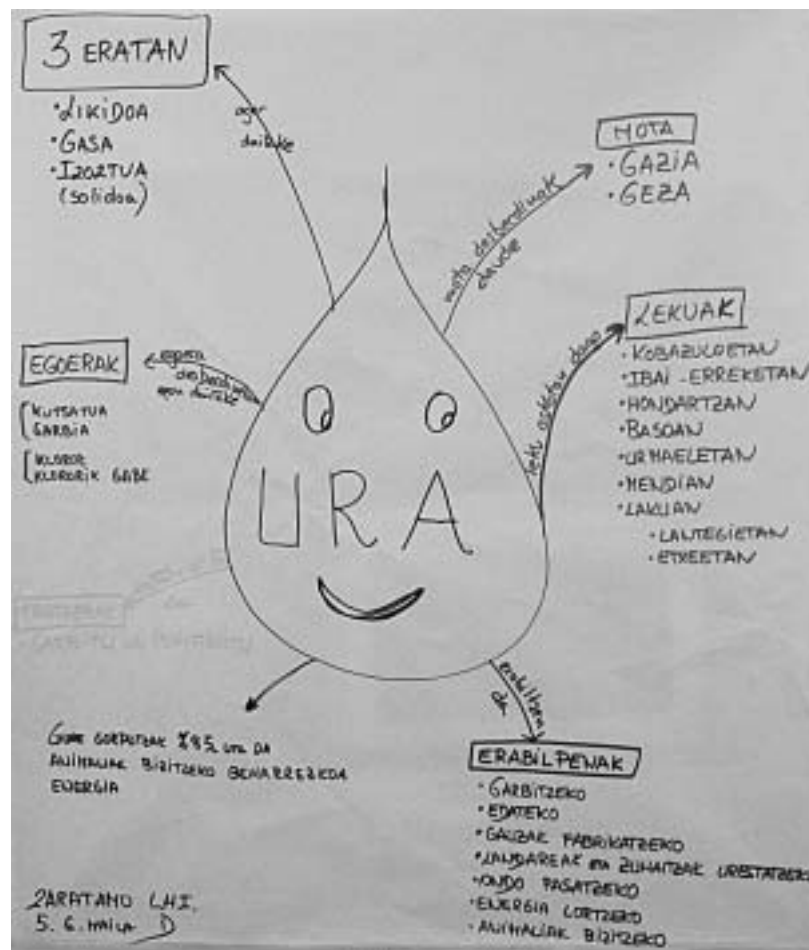 3 ERATAN
• LIKIDOA
• GASA
• IZOZTUA
(solidoa)
ager
daiteke
MOTA
• GAZIA
• GEZA
mota desberdinak
daude
LEKUAK
• KOBAZULOETAN
• IBAI-ERREKETAN
• HONDARTZAN
• BASOAN
• URMAELETAN
• MENDIAN
• LAKUAN
• LANTEGIETAN
• ETXEETAN
leku
dago
EGOERAK
egoera
desberdinetan
egon daiteke
KUTSATUA
GARBIA
KLOROZ
KLORORIK GABE
URA
GURE GORPUTZAK %85 ura DA
ANIMALIAK BIZITZEKO BEHARREZKOA
ENERGIA
erabiltzen
da
ERABILPENAK
• GARBITZEKO
• EDATEKO
• GAUZAK FABRIKATZEKO
• LANDAREAK eta ZUHAITZAK UREZTATZEKO
• ONDO PASATZEKO
• ENERGIA LORTZEKO
• ANIMALIAK BIZITZEKO
ZARATAMO LHI.
5. 6. MAILA D